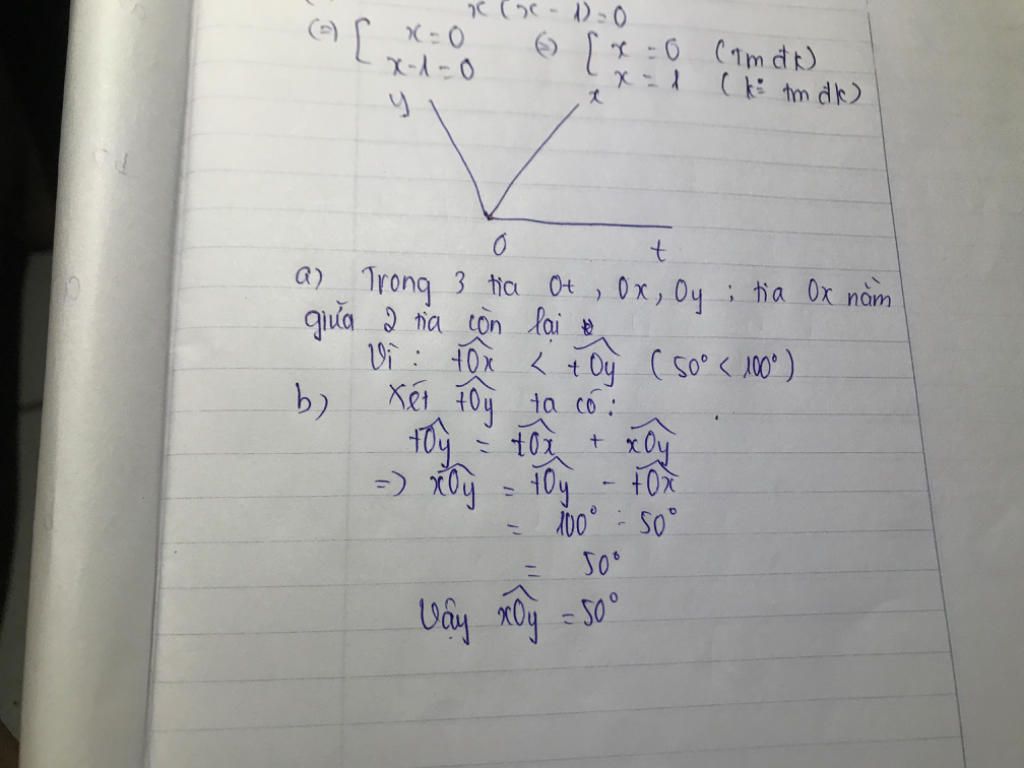 x(x-1)=0
(=) [ x=0 (=) [ x=0 (Tm đk)
x-1=0 x=1 (k: tm đk)
y x
O t
a) Trong 3 tia Ot, Ox, Oy; tia Ox nằm
giữa 2 tia còn lại
Vì: tOx < tOy (50° < 100°)
b) Xét tOy ta có:
tOy = tOx + xOy
=) xOy = tOy - tOx
= 100° - 50°
= 50°
Vậy xOy = 50°